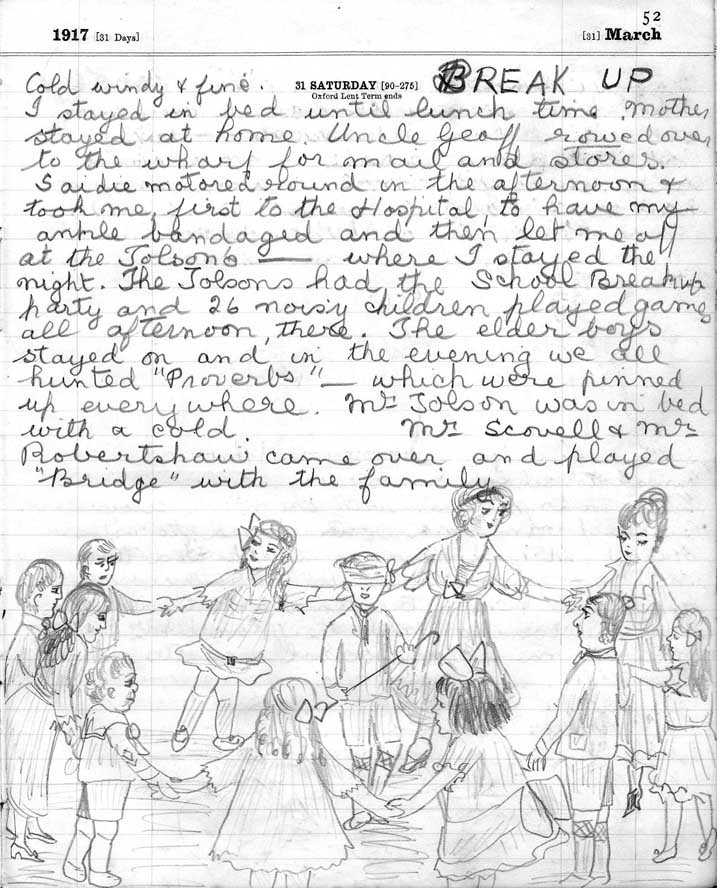 52
1917 [31 Days] [31] March
Cold windy & fine. 31 SATURDAY [90-275] BREAK UP
Oxford Lent Term ends
I stayed in bed until lunch time. Mother
stayed at home. Uncle Geoff rowed over
to the wharf for mail and stores.
Saidie motored round in the afternoon &
took me, first to the Hospital, to have my
ankle bandaged and then let me off
at the Tolson's — where I stayed the
night. The Tolsons had the School Breakup
party and 26 noisy children played games
all afternoon, there. The elder boys
stayed on and in the evening we all
hunted "Proverbs" — which were pinned
up everywhere. Mr Tolson was in bed
with a cold. Mr Scovell & Mr
Robertshaw came over and played
"Bridge" with the family